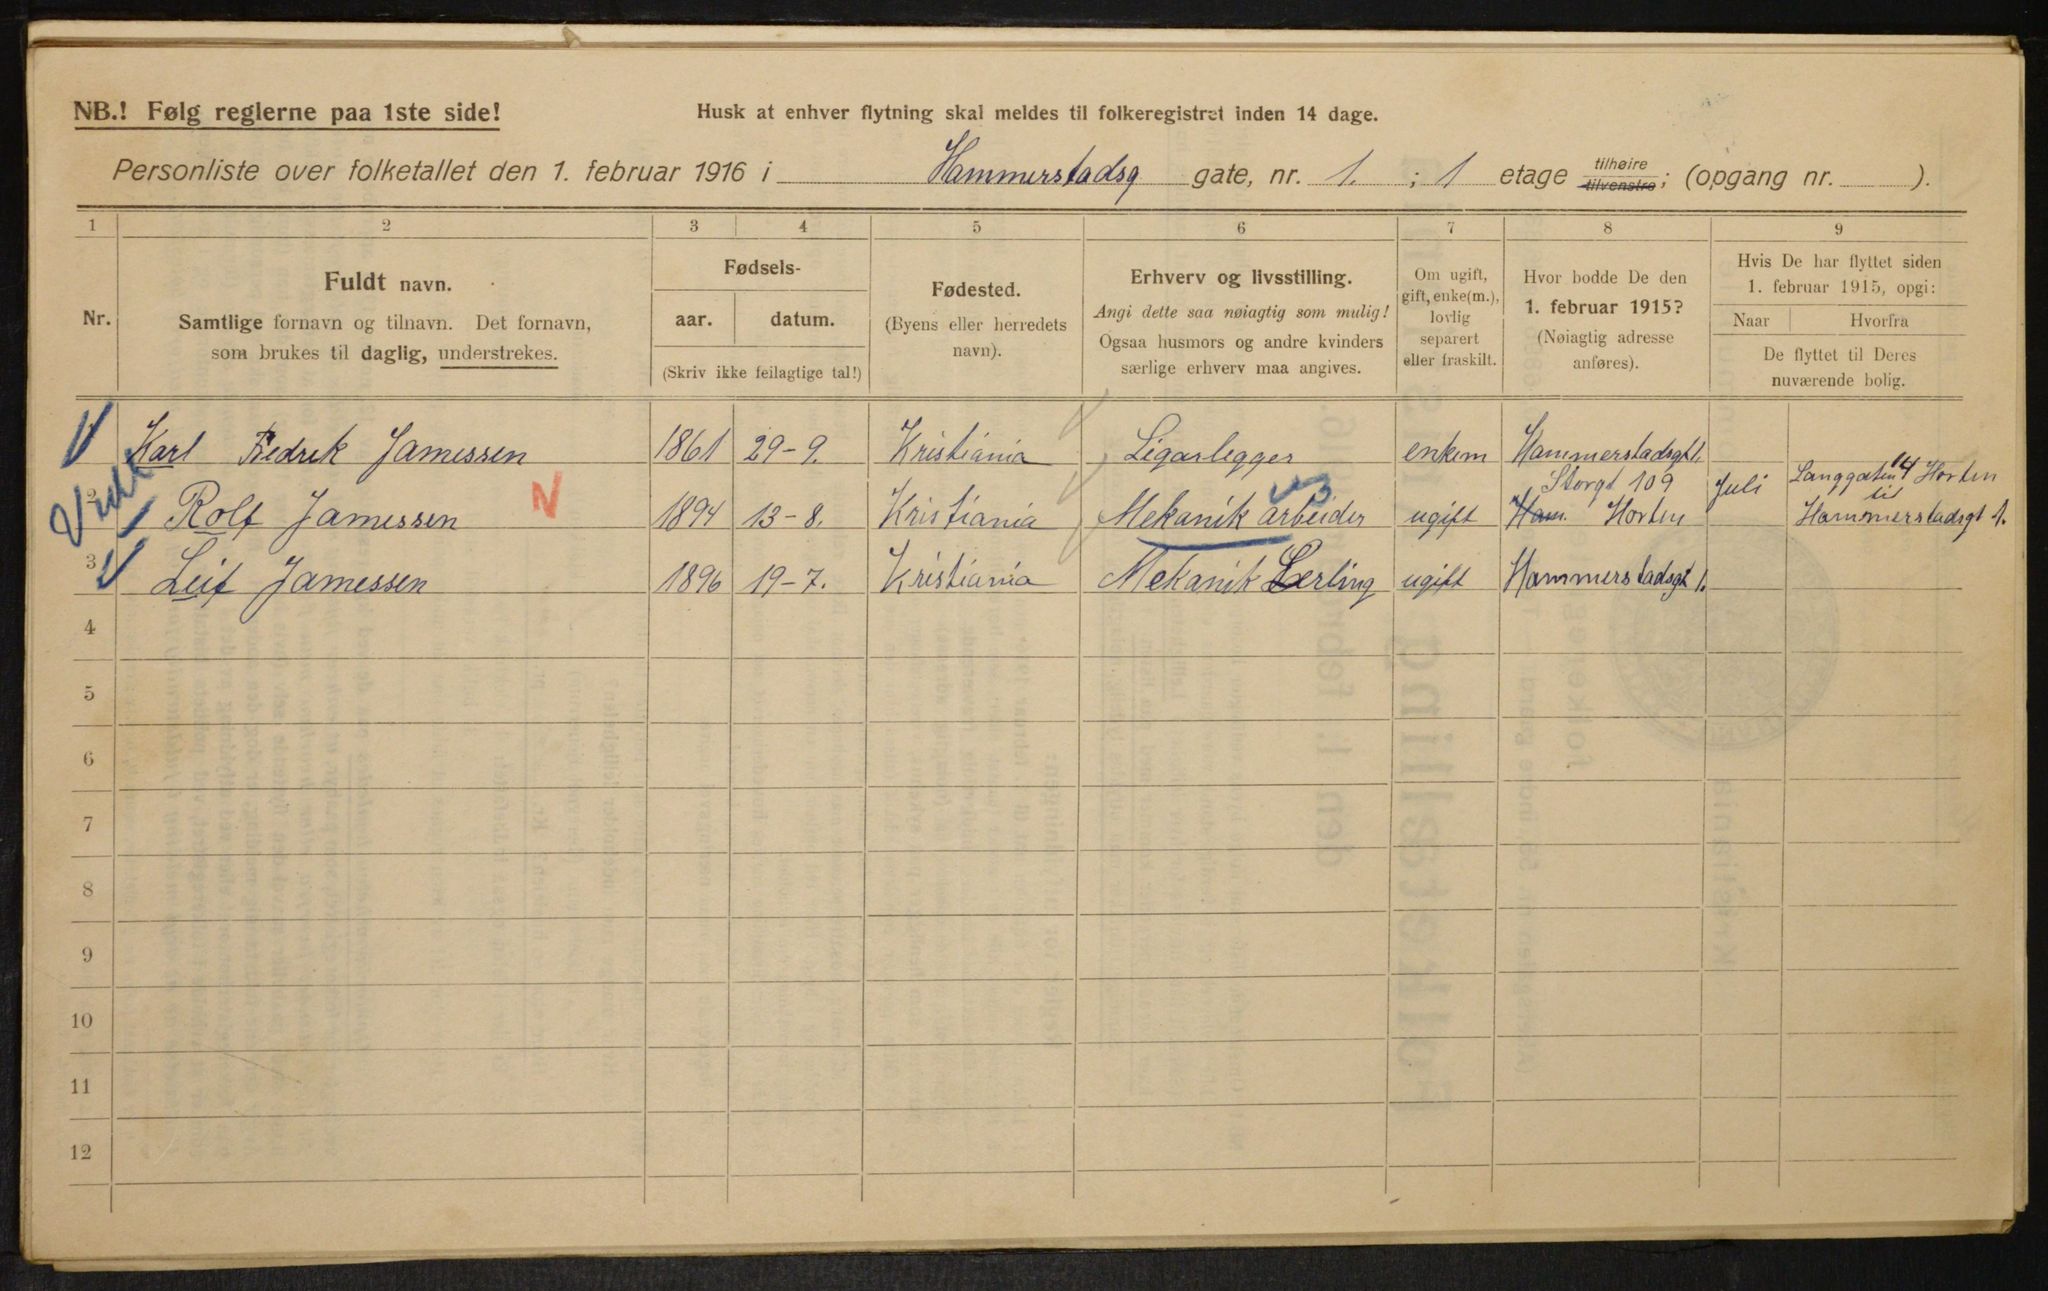 NB.! Følg reglerne paa 1ste side!
Husk at enhver flytning skal meldes til folkeregistret inden 14 dage.
Personliste over folketallet den 1. februar 1916 i Hammerstadsg gate, nr. 1. ; 1 etage tilhøire tilvenstre; (opgang nr. ).
1 2 3 4 5 6 7 8 9
Nr.
Fuldt navn.
Samtlige fornavn og tilnavn. Det fornavn,
som brukes til daglig, understrekes.
Fødsels-
aar. datum.
(Skriv ikke feilagtige tal!)
Fødested.
(Byens eller herredets
navn).
Erhverv og livsstilling.
Angi dette saa nøiagtig som mulig!
Ogsaa husmors og andre kvinders
særlige erhverv maa angives.
Om ugift,
gift, enke(m.),
lovlig
separert
eller fraskilt.
Hvor bodde De den
1. februar 1915?
(Nøiagtig adresse
anføres).
Hvis De har flyttet siden
1. februar 1915, opgi:
Naar Hvorfra
De flyttet til Deres
nuværende bolig.
1 Karl Fredrik Jamessen 1861 29-9. Kristiania Sigarlegger enkem Hammerstadsgt 1.
Storgt 109 Langgaten 14 Horten
2 Rolf Jamessen N 1894 13-8. Kristiania Mekanik arbeider ugift Ham. Horten Juli til Hammerstadsgt 1.
3 Leif Jamessen 1896 19-7. Kristiania Mekanik Lærling ugift Hammerstadsgt 1.
4
5
6
7
8
9
10
11
12